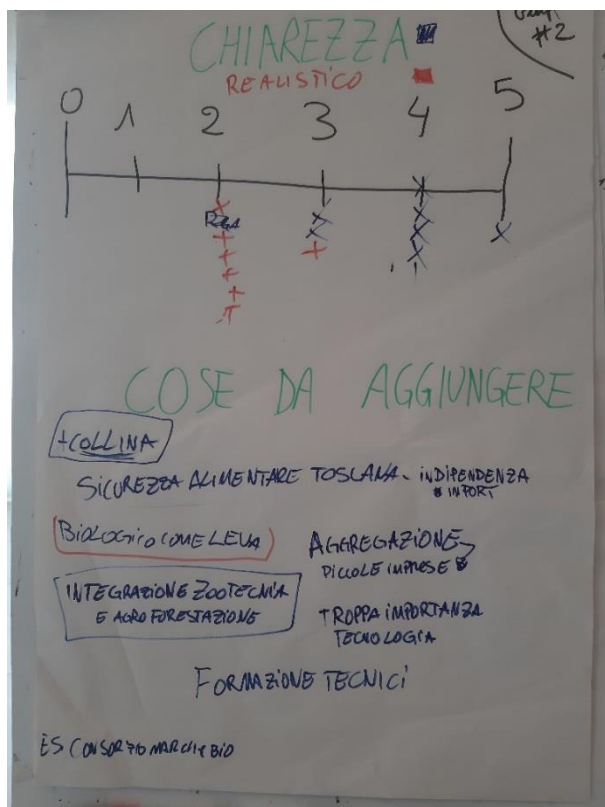 #2
CHIAREZZA
REALISTICO
0 1 2 3 4 5
COSE DA AGGIUNGERE
+COLLINA
SICUREZZA ALIMENTARE TOSCANA - INDIPENDENZA
IMPORT
BIOLOGICO COME LEVA
AGGREGAZIONE
PICCOLE IMPRESE
INTEGRAZIONE ZOOTECNIA
E AGROFORESTAZIONE
TROPPA IMPORTANZA
TECNOLOGIA
FORMAZIONE TECNICI
ES CONSORZIO MARCHE BIO